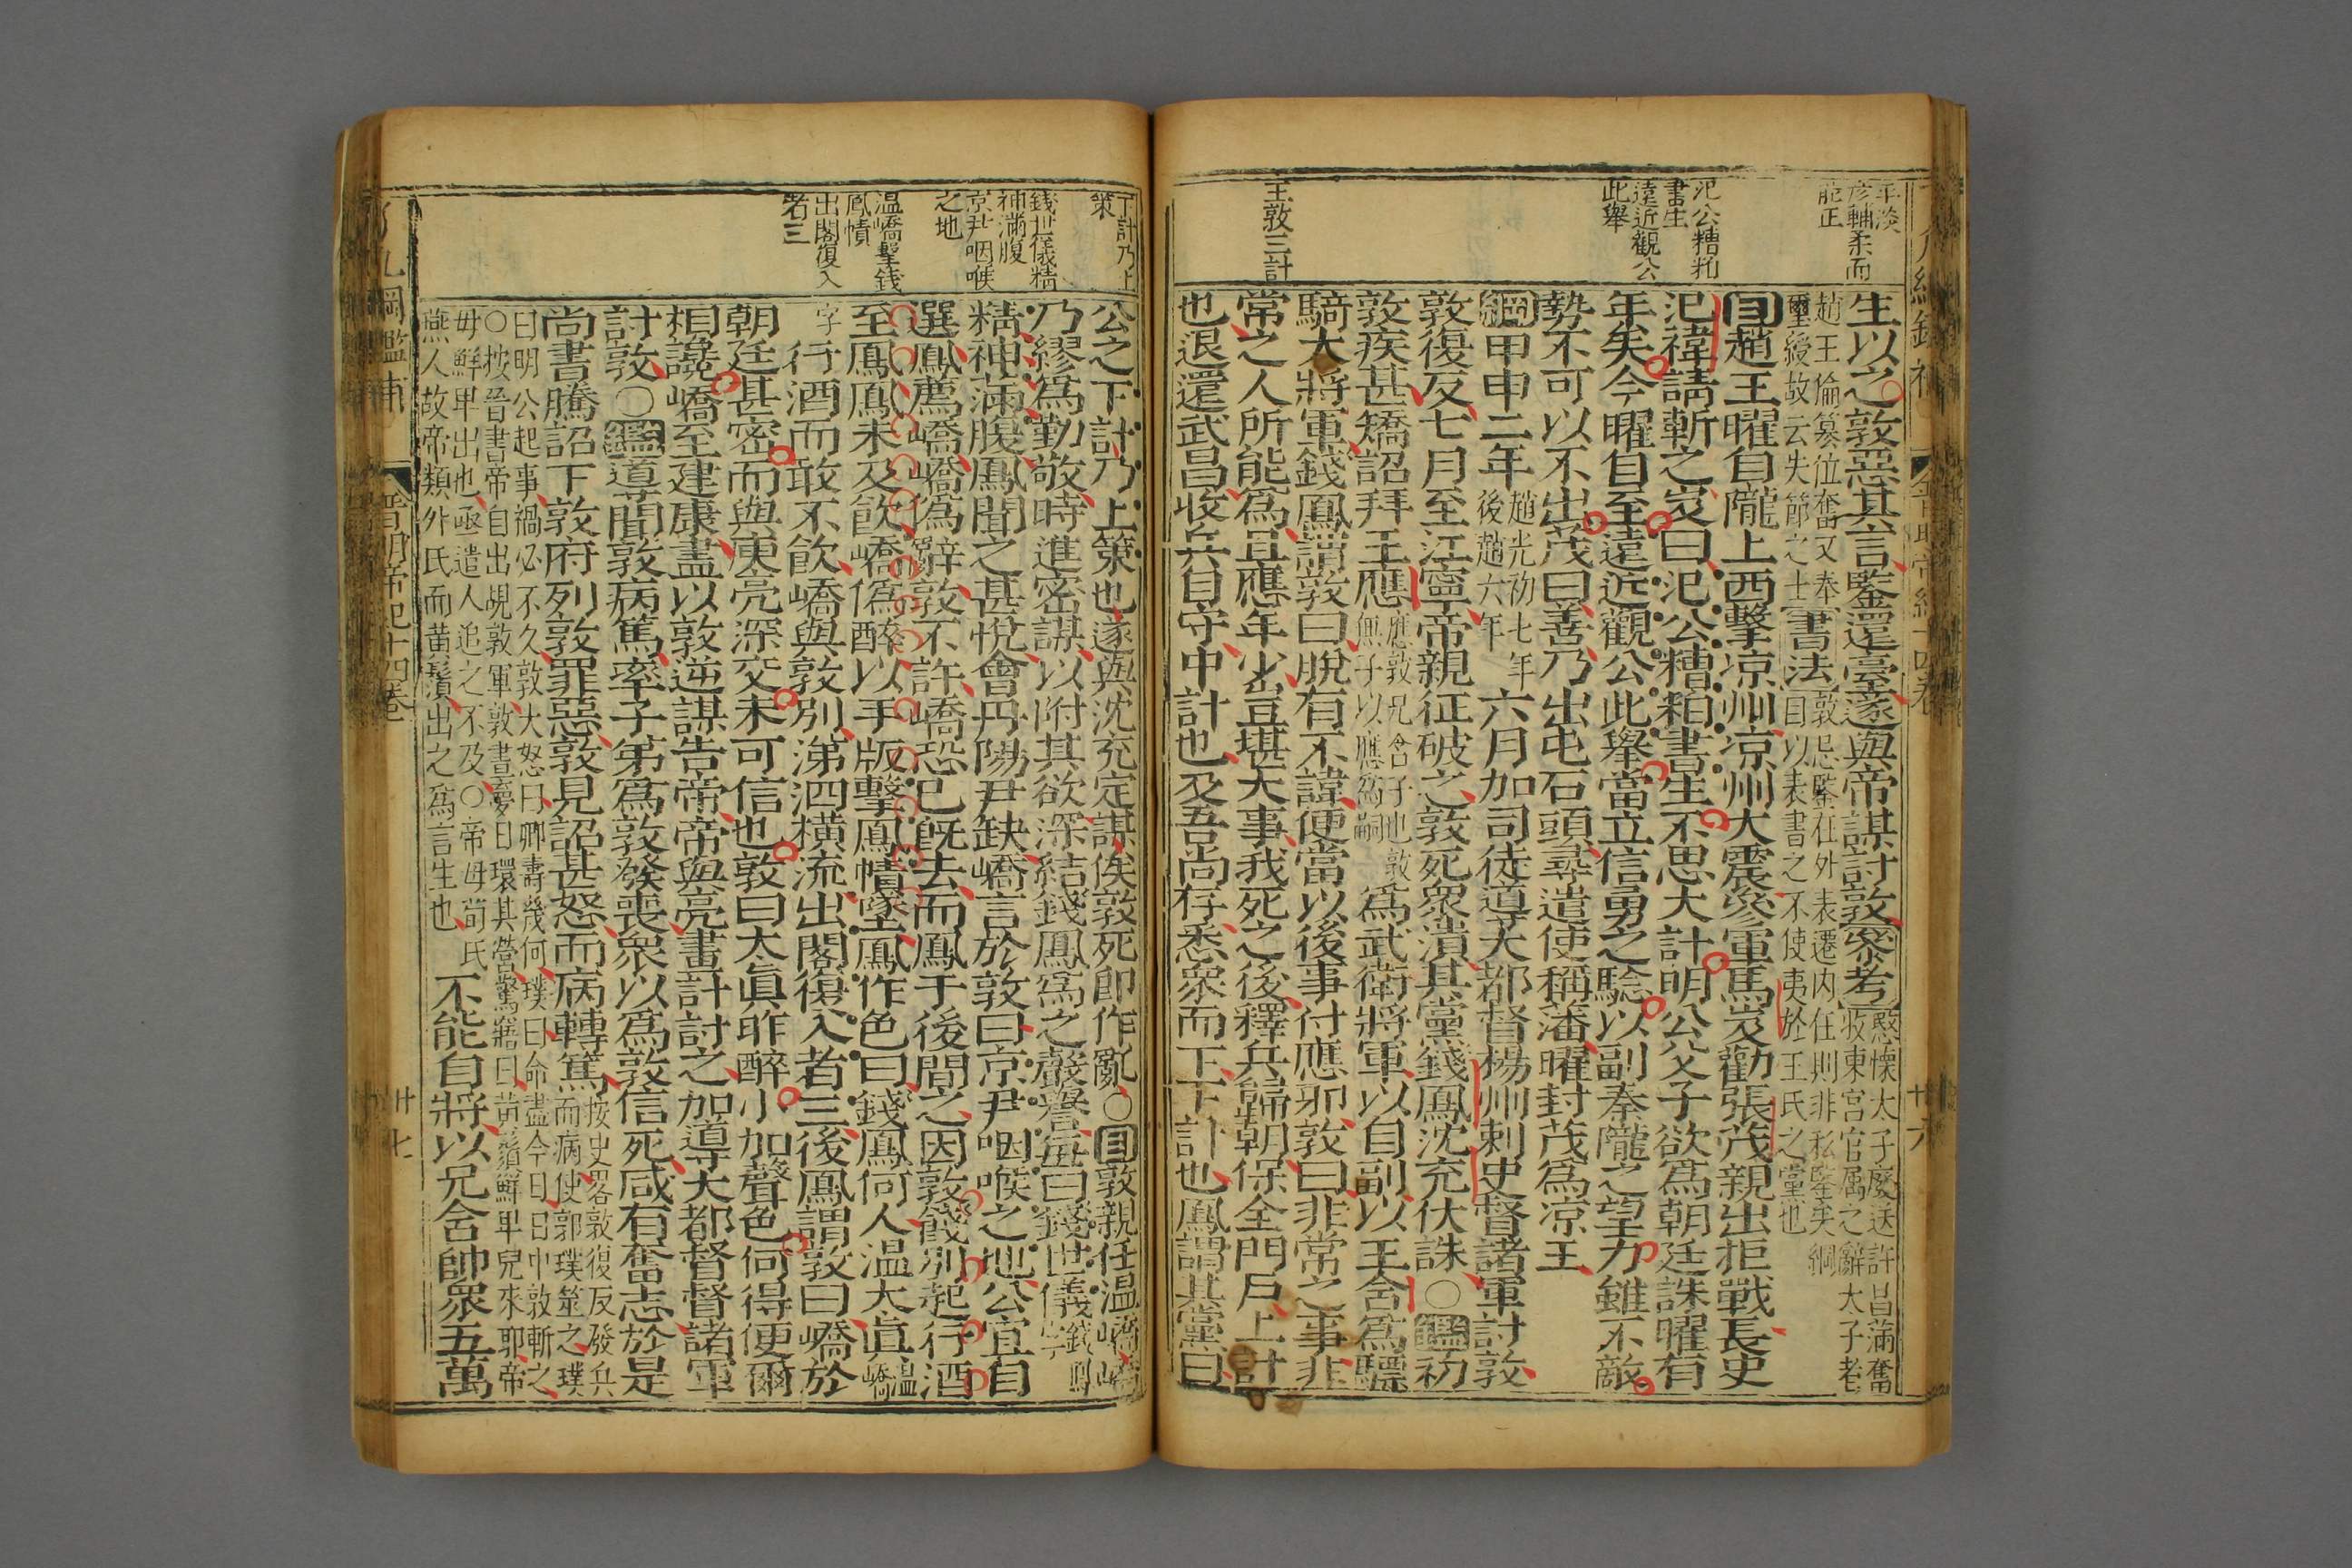 平淡
彥輔柔而
能正
氾公糟粕
書生
遠近觀公
此舉
王敦三計
生以之敦惡其言鑒還臺遂與帝謀討敦參考愍懷太子廢送許昌滿奮
收東宮官属之辭太子老
趙王倫篡位奮又奉
璽綬故云失節之士書法敦忌鑒在外表遷內任則非私鑒矣綱
目以表書之不使夷於王氏之黨也
目趙王曜自隴上西擊凉州凉州大震參軍馬岌勸張茂親出拒戰長史
氾禕請斬之岌曰氾公糟粕書生不思大計明公父子欲為朝廷誅曜有
年矣今曜自至遠近觀公此舉當立信勇之驗以副秦隴之望力雖不敵
勢不可以不出茂曰善乃出屯石頭尋遣使稱藩曜封茂為凉王
綱甲申二年趙光初七年
後趙六年六月加司徒導大都督楊州刺史督諸軍討敦
敦復反七月至江寧帝親征破之敦死衆潰其黨錢鳳沈充伏誅○鑑初
敦疾甚矯詔拜王應應敦兄含子也敦
無子以應為嗣為武衛將軍以自副以王含為驃
騎大將軍錢鳳謂敦曰脫有不諱便當以後事付應邪敦曰非常之事非
常之人所能為且應年少豈堪大事我死之後釋兵歸朝保全門戶上計
也退還武昌收兵自守中計也及吾尚存悉衆而下下計也鳳謂其黨曰
晉明帝紀十四卷
廿六
下計乃上
策
錢世儀精
神滿腹
京尹咽喉
之地
温嶠擊錢
鳳幘
出閣復入
者三
公之下計乃上策也遂與沈充定謀俟敦死即作亂○目敦親任温嶠嶠
乃繆為勤敬時進密謀以附其欲深結錢鳳為之聲譽每曰錢世儀錢鳳
字精神滿腹鳳聞之甚悅會丹陽尹缺嶠言於敦曰京尹咽喉之地公宜自
選鳳薦嶠嶠偽辭敦不許嶠恐已既去而鳳于後間之因敦餞別起行酒
至鳳鳳未及飲嶠偽醉以手版擊鳳幘墜鳳作色曰錢鳳何人温太眞温嶠
字行酒而敢不飲嶠與敦別涕泗橫流出閣復入者三後鳳謂敦曰嶠於
朝廷甚密而與庾亮深交未可信也敦曰太眞昨醉小加聲色何得便爾
相讒嶠至建康盡以敦逆謀告帝帝與亮畫計討之加導大都督督諸軍
討敦○鑑導聞敦病篤率子弟為敦發喪衆以為敦信死咸有奮志於是
尚書騰詔下敦府列敦罪惡敦見詔甚怒而病轉篤按史畧敦復反發兵
而病使郭璞筮之璞
曰明公起事禍必不久敦大怒曰卿壽幾何璞曰命盡今日日中敦斬之
○按晉書帝自出覘敦軍敦晝夢日環其營驚寤曰黃鬚鮮卑兒來耶帝
母鮮卑出也亟遣人追之不及○帝母荀氏
燕人故帝類外氏而黃鬚出之為言生也不能自將以兄含帥衆五萬
綱鑑補
晉明帝紀十四卷
廿七